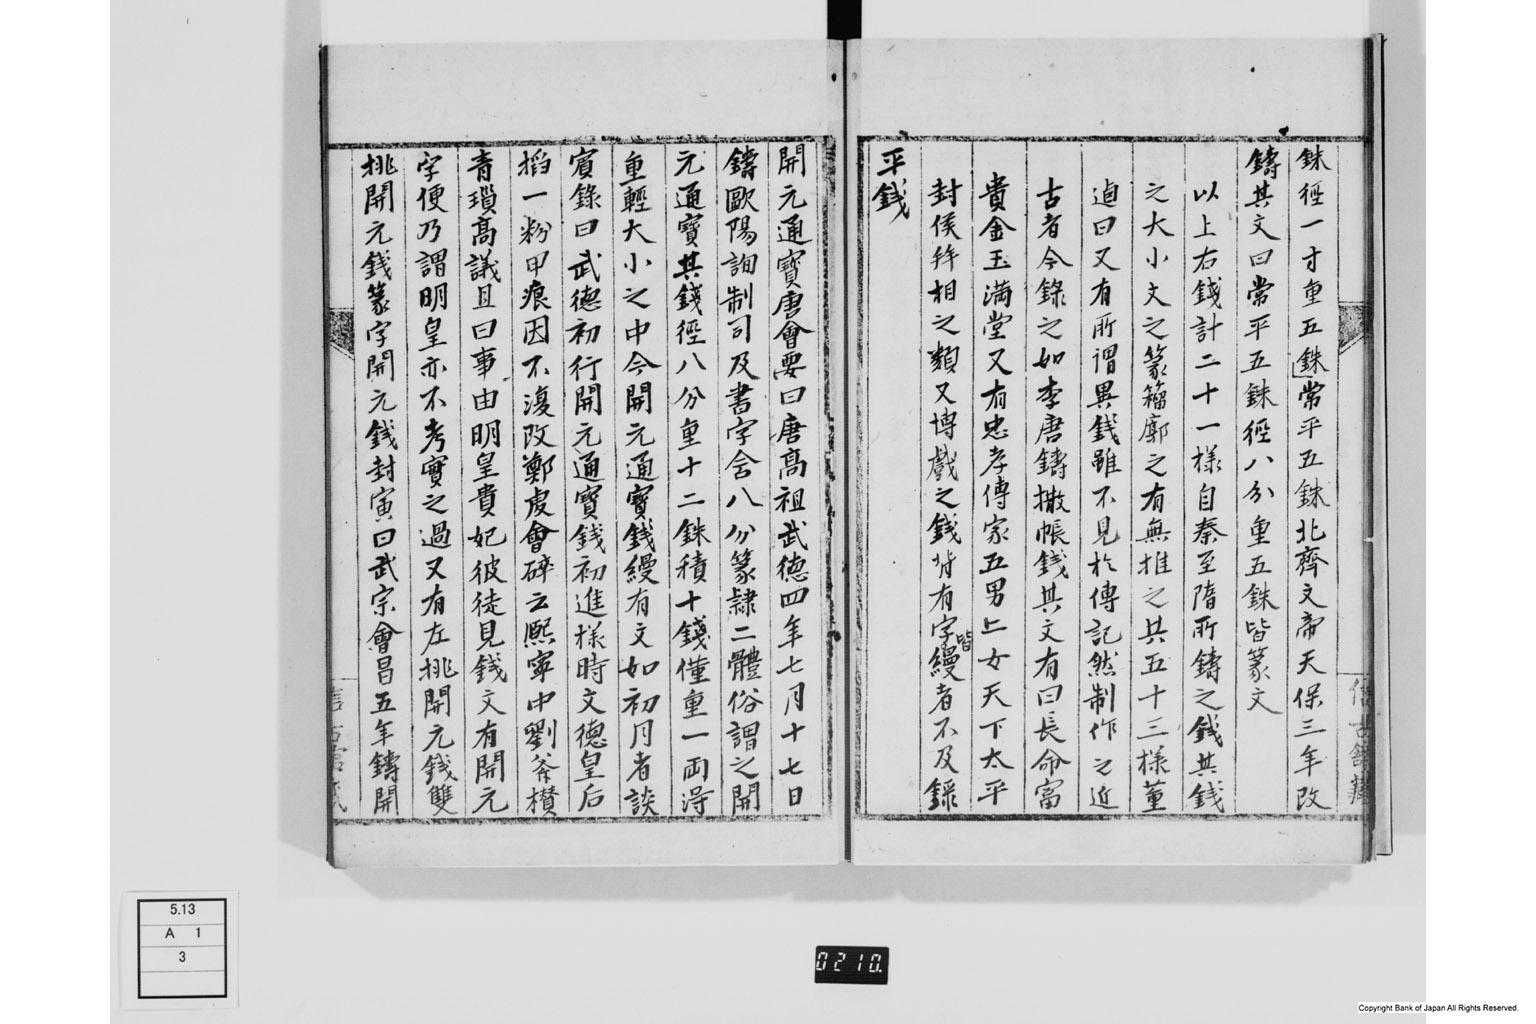 銖徑一寸重五銖常平五銖北齊文帝天保三年改
鑄其文曰常平五銖徑八分重五銖皆篆文
以上右錢計二十一樣自秦至隋所鑄之錢其錢
之大小文之篆籀廓之有無推之其五十三樣董
逌曰又有所謂異錢雖不見於傳記然制作之近
古者今錄之如李唐鑄撒帳錢其文有曰長命富
貴金玉滿堂又有忠孝傳家五男二女天下太平
封侯拜相之類又博戲之錢背有字皆縵者不及錄
平錢
開元通寶唐會要曰唐高祖武德四年七月十七日
鑄歐陽詢制司及書字含八分篆隸二體俗謂之開
元通寶其錢徑八分重十二銖積十錢僅重一兩淂
重輕大小之中今開元通寶錢縵有文如初月者談
賓錄曰武德初行開元通寶錢初進樣時文德皇后
搯一粉甲痕因不復改鄭虔會碎云熙寧中劉斧櫕
青瑣高議且曰事由明皇貴妃彼徒見錢文有開元
字便乃謂明皇亦不考實之過又有左挑開元錢雙
挑開元錢篆字開元錢封寅曰武宗會昌五年鑄開
5.13
A 1
3
0210.
Copyright Bank of Japan All Rights Reserved.